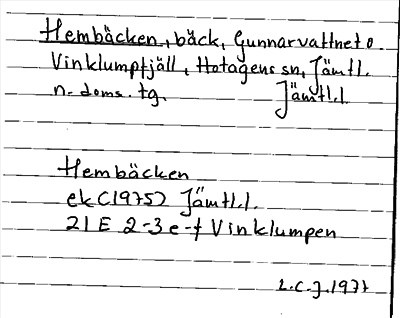 Hembäcken, bäck, Gunnarvattnet o
Vinklumpfjäll, Hotagens sn, Jämtl.
n. doms. tg. Jämtl.l.
Hembäcken
ek (1975) Jämtl.l.
21 E 2-3 e-f Vinklumpen
L.C.J. 1977